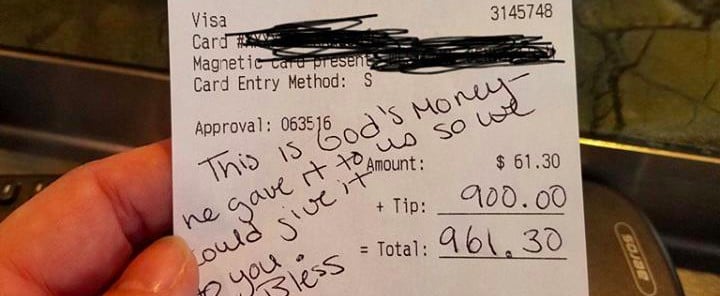 Visa 3145748
Card
Magnetic card present
Card Entry Method: S
Approval: 063516
This is God's Money-
he gave it to us so we
could give it
to you.
Bless
Amount: $ 61.30
+ Tip: 900.00
= Total: 961.30